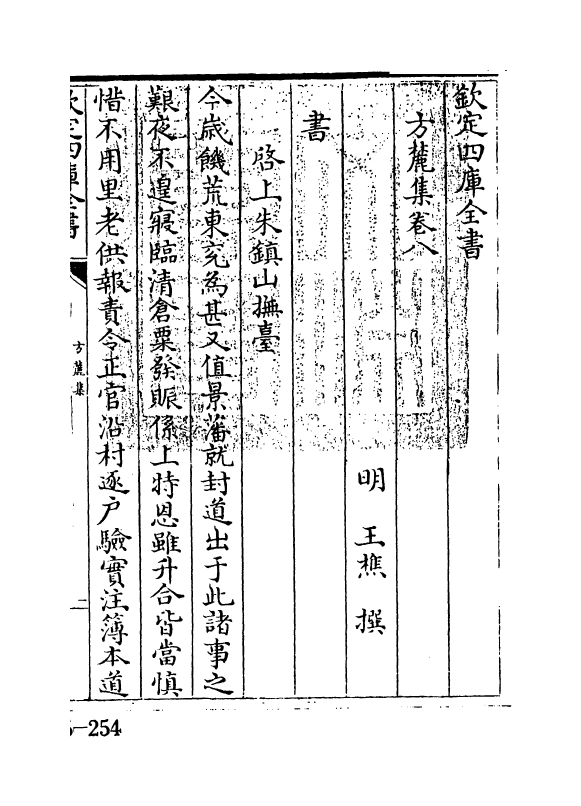 欽定四庫全書
方麓集卷八
明 王樵 撰
書
啓上朱鎮山撫臺
今歲饑荒東兖為甚又值景藩就封道出于此諸事之
艱夜不遑寢臨清倉粟發賑係上特恩雖升合皆當慎
惜不用里老供報責令正官沿村逐戶驗實注簿本道
欽定四庫全書
方麓集
-254